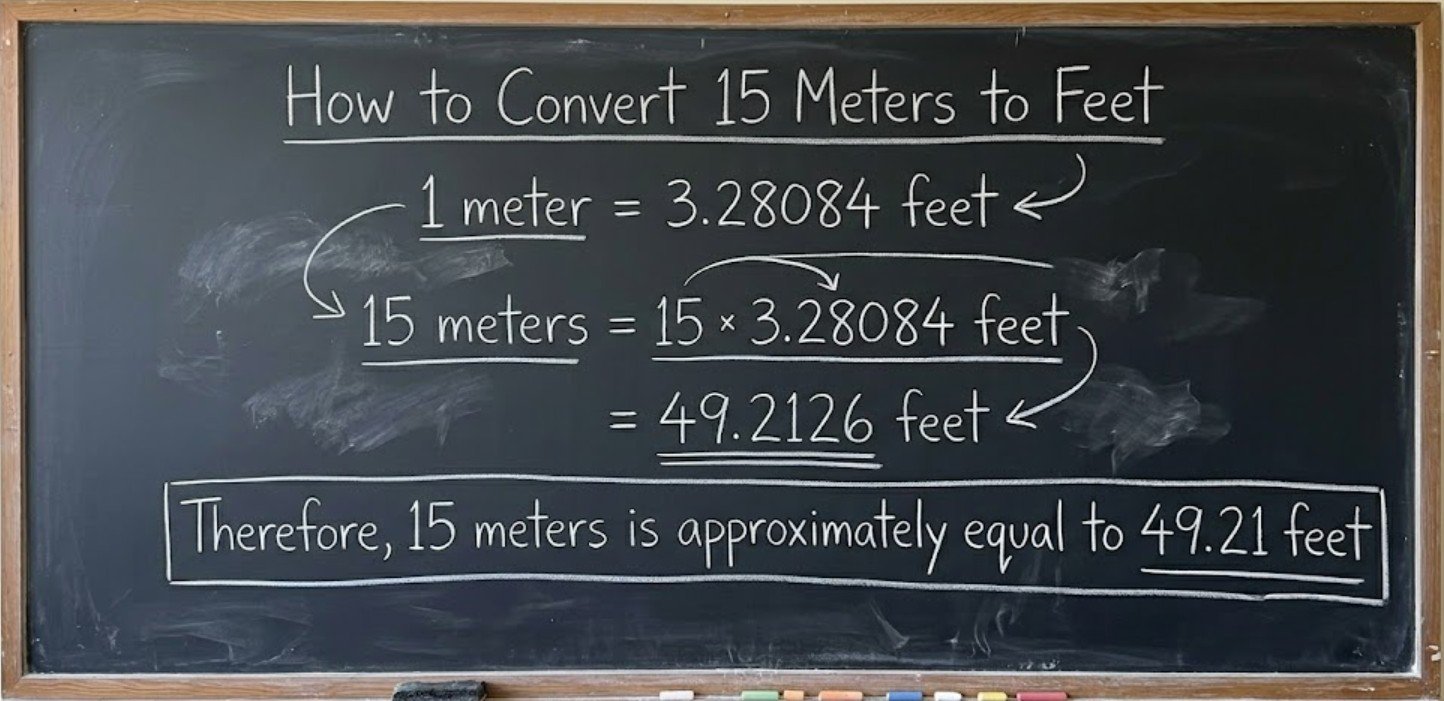 How to Convert 15 Meters to Feet
1 meter = 3.28084 feet
15 meters = 15 × 3.28084 feet
= 49.2126 feet
Therefore, 15 meters is approximately equal to 49.21 feet